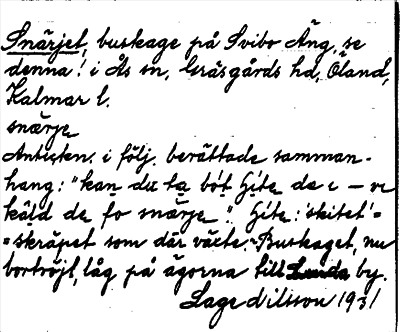 Snärjet, buskage på Svibo Äng, se
denna! i Ås sn, Gräsgårds hd, Öland,
Kalmar l.
snærje
Anteckn. i följ. berättade samman-
hang: "kan du ta bót Gíte de i – ve
kàld de fo snærje". Gíte: 'skitet' =
= skräpet som där växte. Buskaget, nu
bortröjt, låg på ägorna till by.
Lage Nilsson 1931